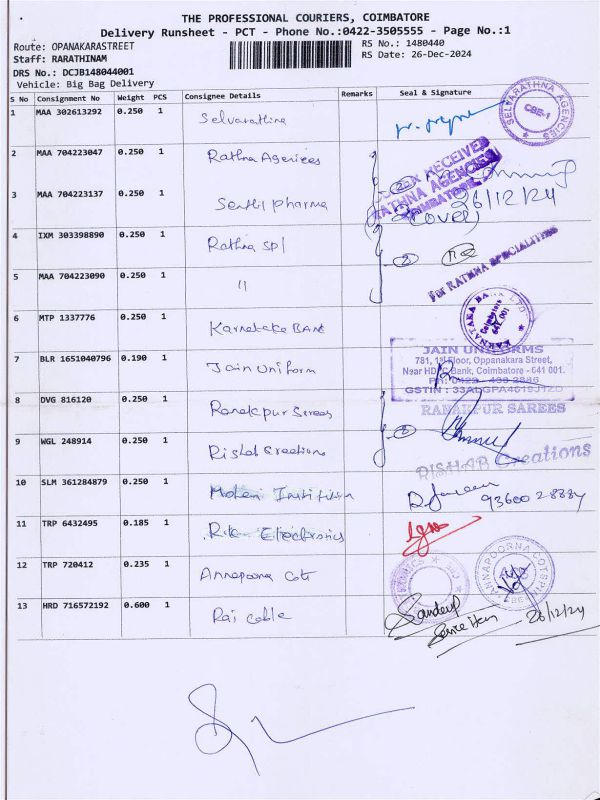 THE PROFESSIONAL COURIERS, COIMBATORE
Delivery Runsheet - PCT - Phone No.:0422-3505555 - Page No.:1
Route: OPANAKARASTREET
RS No.: 1480440
Staff: RARATHINAM
RS Date: 26-Dec-2024
DRS No.: DCJB148044001
Vehicle: Big Bag Delivery
S No Consignment No Weight PCS Consignee Details Remarks Seal & Signature
1 MAA 302613292 0.250 1 Selvarathna
SELVARATHNA AGENCIES CBE-1
2 MAA 704223047 0.250 1 Rathna Agencies
RECEIVED
RATHNA AGENCIES
COIMBATORE
26/12/24
3 MAA 704223137 0.250 1 Senthil Pharma
Cover
4 IXM 303398890 0.250 1 Rathna Spl
For RATHNA SPECIALITIES
5 MAA 704223090 0.250 1 11
6 MTP 1337776 0.250 1 Karnataka Bank
KARNATAKA BANK LTD Coimbatore 641 001
7 BLR 1651040796 0.190 1 Jain Uniform
JAIN UNIFORMS
781, 1st Floor, Oppanakara Street,
Near HDFC Bank, Coimbatore - 641 001.
8 DVG 816120 0.250 1 Ranakpur Sarees
RANAKPUR SAREES
9 WGL 248914 0.250 1 Rishab Creations
RISHAB Creations
10 SLM 361284879 0.250 1
93600 28884
11 TRP 6432495 0.185 1 Electronics
12 TRP 720412 0.235 1 Annapoorna Cot
ANNAPOORNA COTSPIN
13 HRD 716572192 0.600 1 Raj Cable
Sandeep
26/12/24